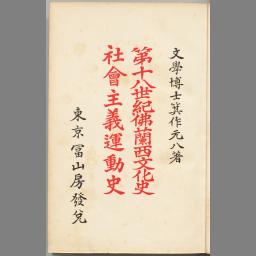 文學博士箕作元八著
第十八世紀佛蘭西文化史
社會主義運動史
東京冨山房發兌